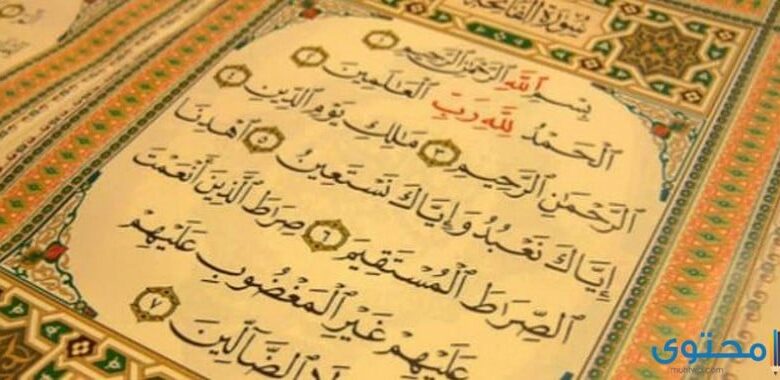 سُورَةُ الفَاتِحَةِ
بِسْمِ ٱللَّهِ ٱلرَّحْمَٰنِ ٱلرَّحِيمِ ١
ٱلْحَمْدُ لِلَّهِ رَبِّ ٱلْعَٰلَمِينَ ٢
ٱلرَّحْمَٰنِ ٱلرَّحِيمِ ٣ مَٰلِكِ يَوْمِ ٱلدِّينِ ٤
إِيَّاكَ نَعْبُدُ وَإِيَّاكَ نَسْتَعِينُ ٥ ٱهْدِنَا
ٱلصِّرَٰطَ ٱلْمُسْتَقِيمَ ٦ صِرَٰطَ ٱلَّذِينَ أَنْعَمْتَ
عَلَيْهِمْ غَيْرِ ٱلْمَغْضُوبِ عَلَيْهِمْ
ٱلضَّآلِّينَ ٧
محتوى